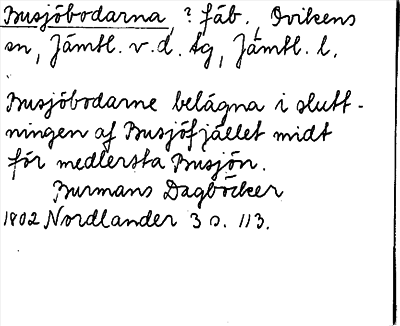 Busjöbodarna, ? fäb., Ovikens
sn, Jämtl. v.d. tg, Jämtl. l.
Busjöbodarne belägna i slutt-
ningen af Busjöfjäellet midt
för medlersta Busjön.
Burmans Dagböcker
1802 Nordlander 3 s. 113.